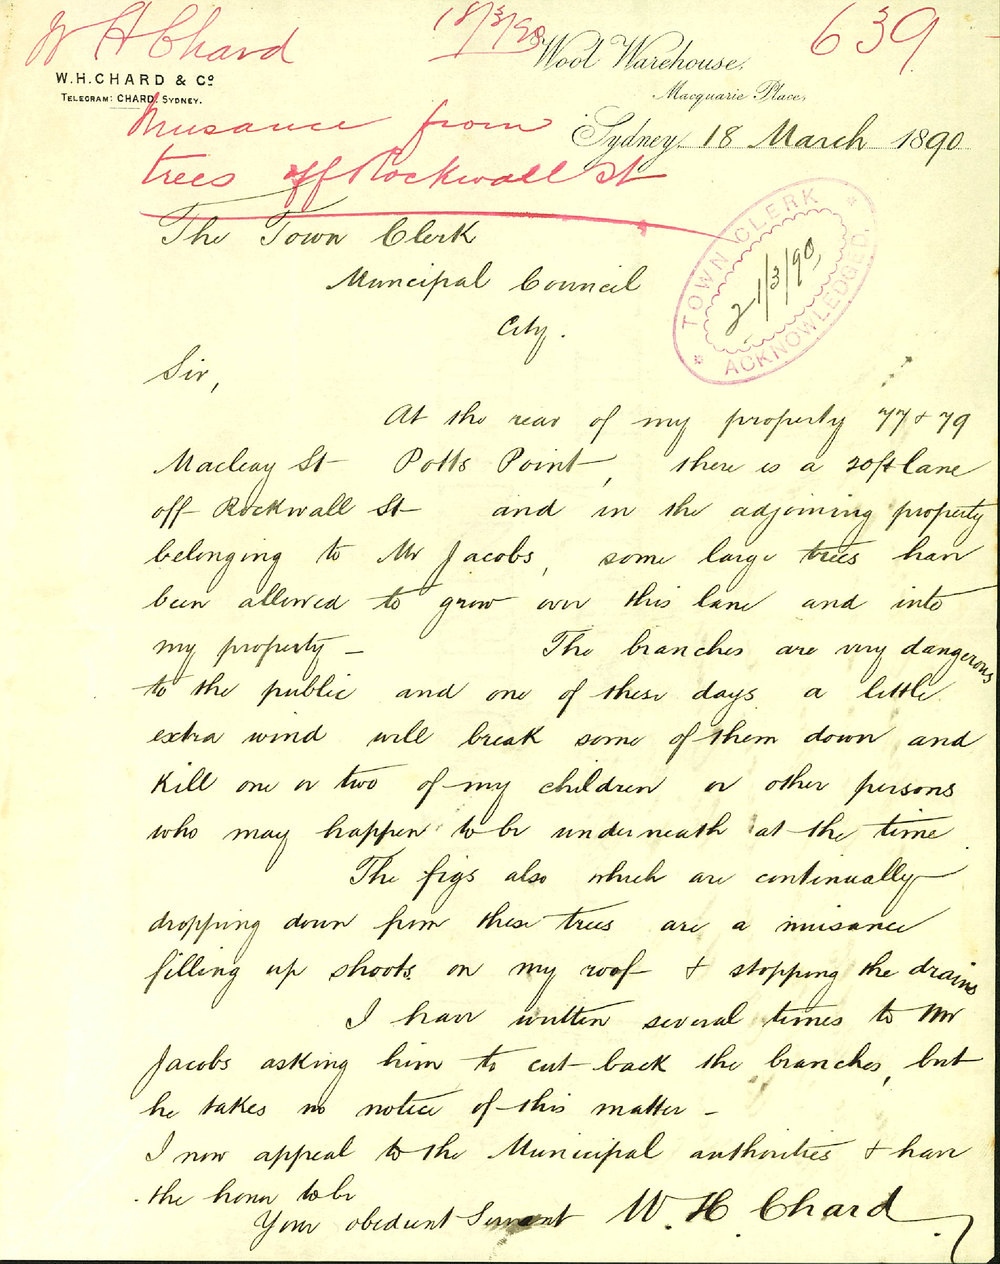 W H Chard
18/3/90
639
W.H. CHARD & Co
TELEGRAM: CHARD, SYDNEY.
Wool Warehouse,
Macquarie Place,
Nuisance from
trees off Rockwall St
Sydney 18 March 1890
The Town Clerk
Municipal Council
City.
TOWN CLERK
21/3/90
ACKNOWLEDGED.
Sir,
At the rear of my property 77 & 79
Macleay St Potts Point, there is a 20ft lane
off Rockwall St and in the adjoining property
belonging to Mr Jacobs, some large trees have
been allowed to grow over this lane and into
my property – The branches are very dangerous
to the public and one of these days a little
extra wind will break some of them down and
kill one or two of my children or other persons
who may happen to be underneath at the time.
The figs also which are continually
dropping down from these trees are a nuisance
filling up shoots on my roof & stopping the drains
I have written several times to Mr
Jacobs asking him to cut back the branches, but
he takes no notice of this matter –
I now appeal to the Municipal authorities & have
the honor to be
Your obedient Servant W. H. Chard